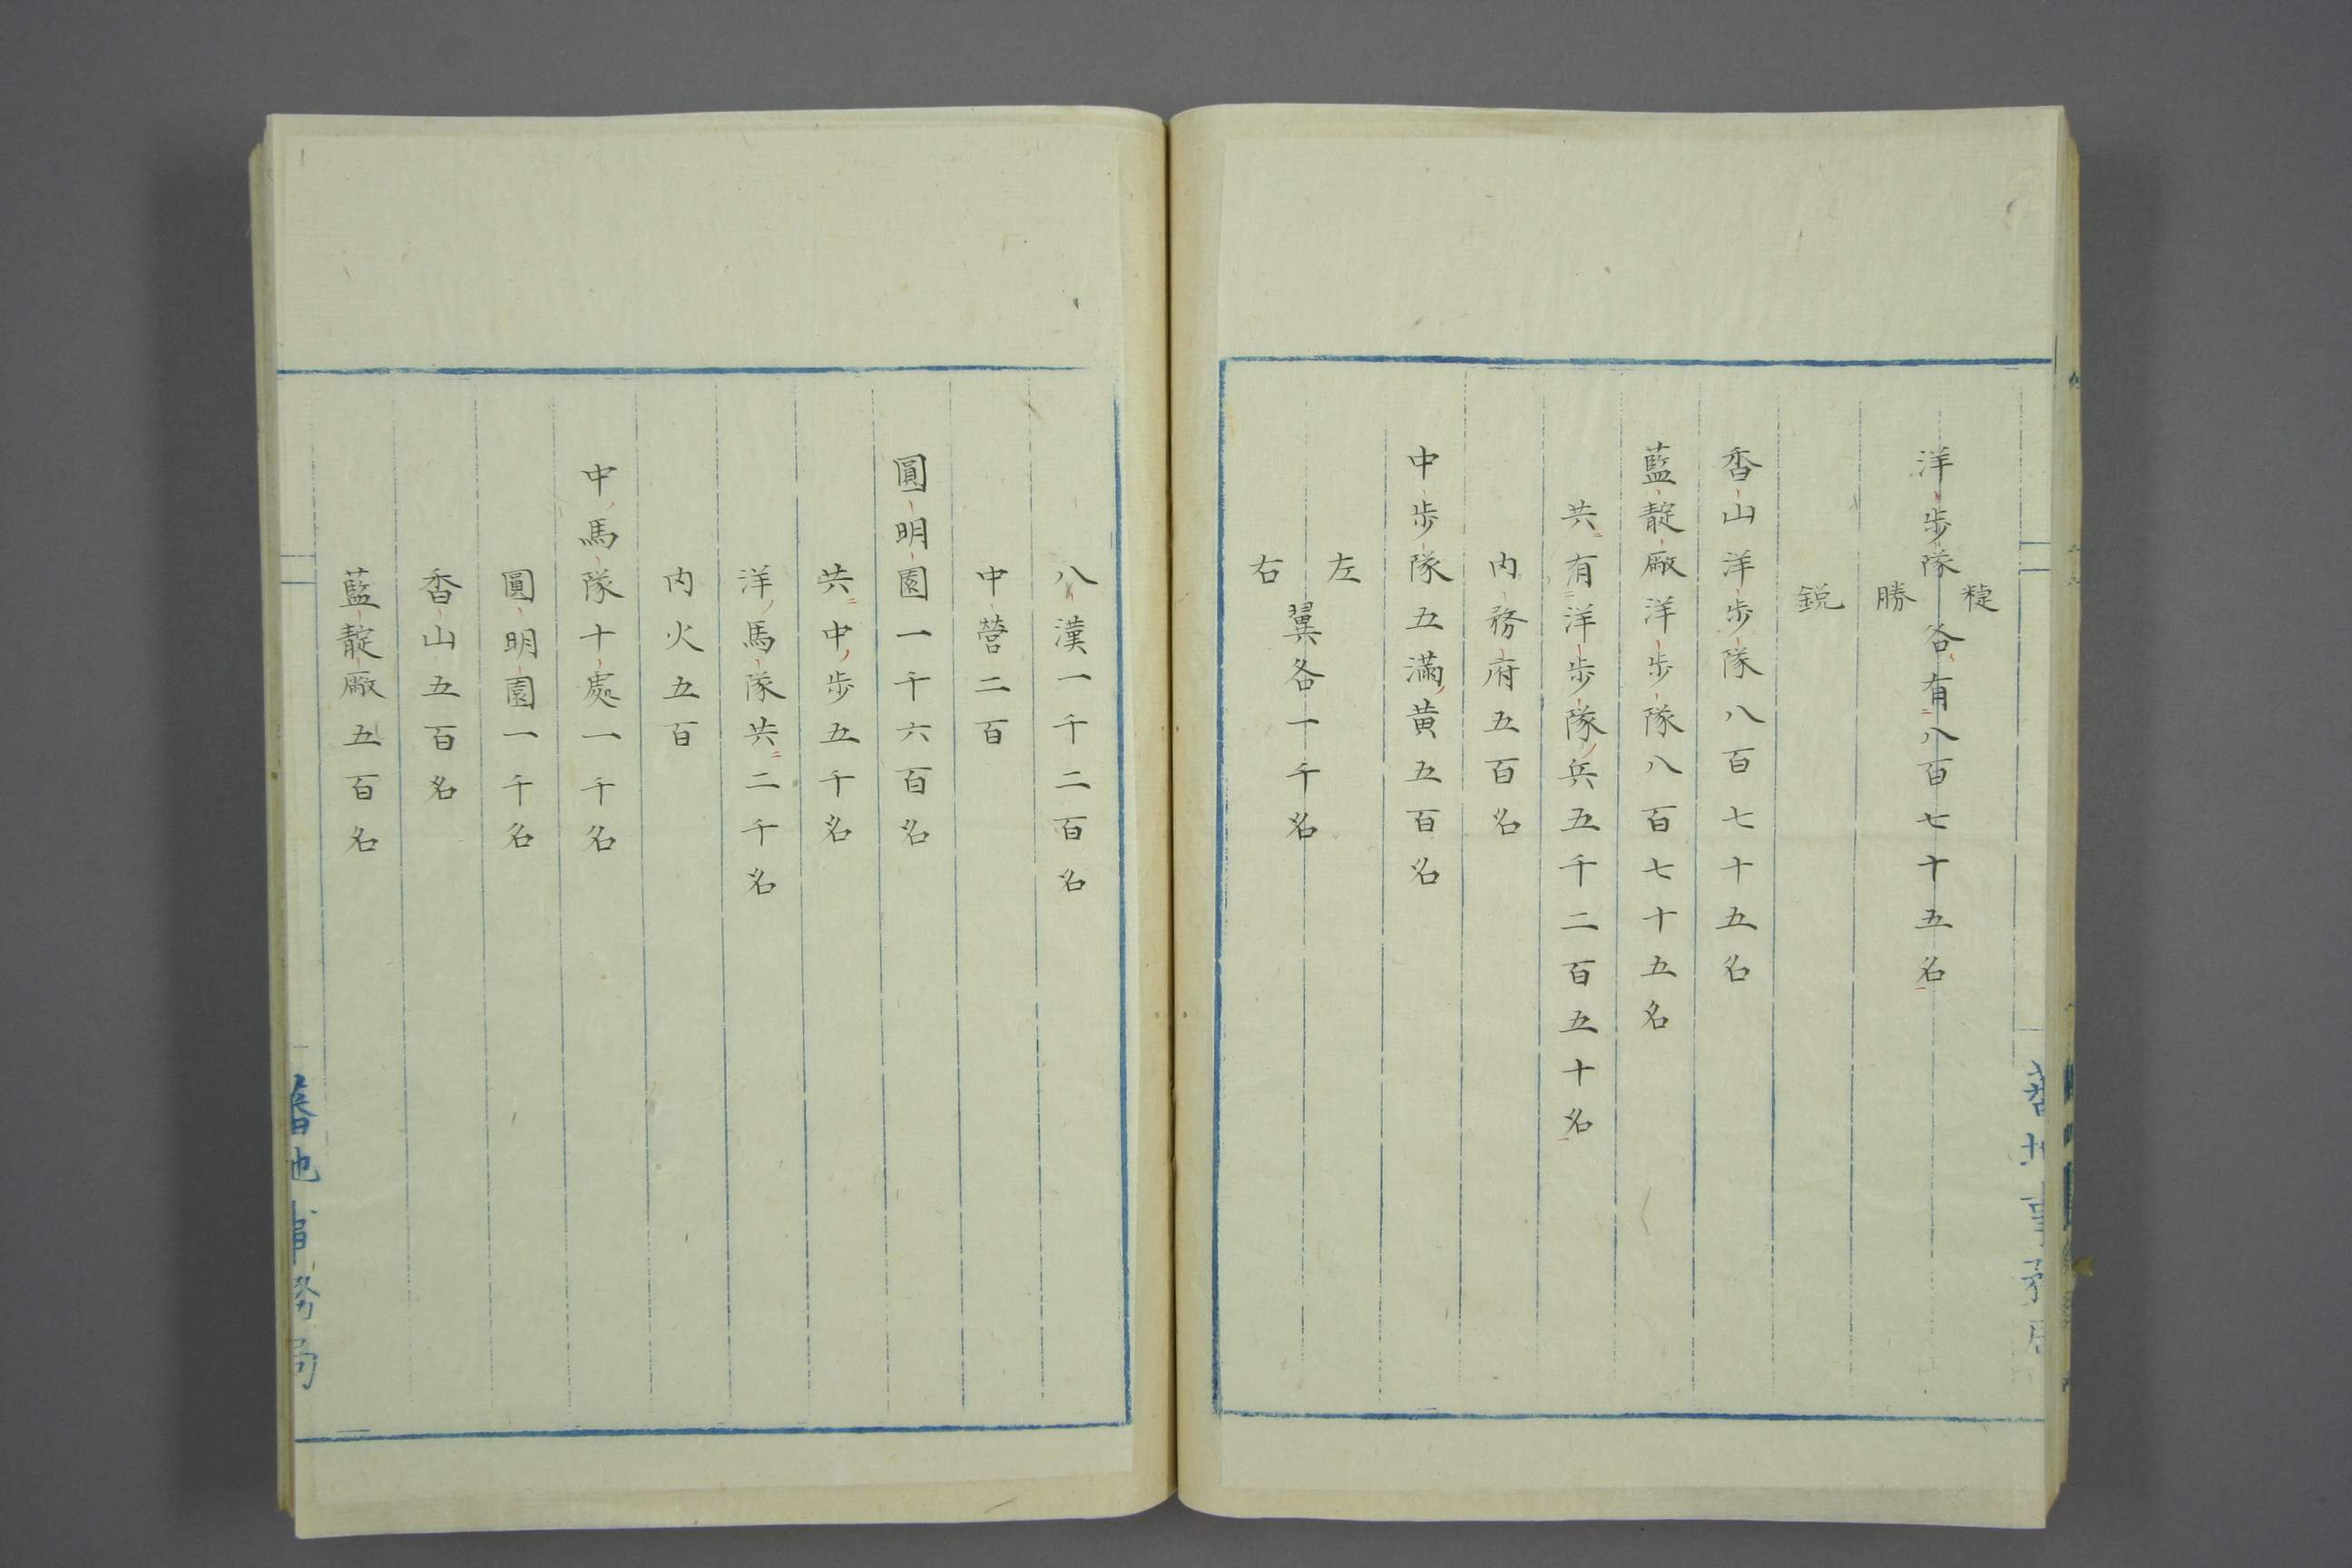 洋歩隊
勝
鋭
各有八百七十五名
香山洋歩隊八百七十五名
藍靛廠洋歩隊八百七十五名
共有洋歩隊兵五千二百五十名
内務府五百名
中歩隊五滿黄五百名
左
右
翼各一千名
八漢一千二百名
中營二百
圓明園一千六百名
共中歩五千名
洋馬隊共二千名
内火五百
中馬隊十處一千名
圓明園一千名
香山五百名
藍靛廠五百名
蕃地事務局